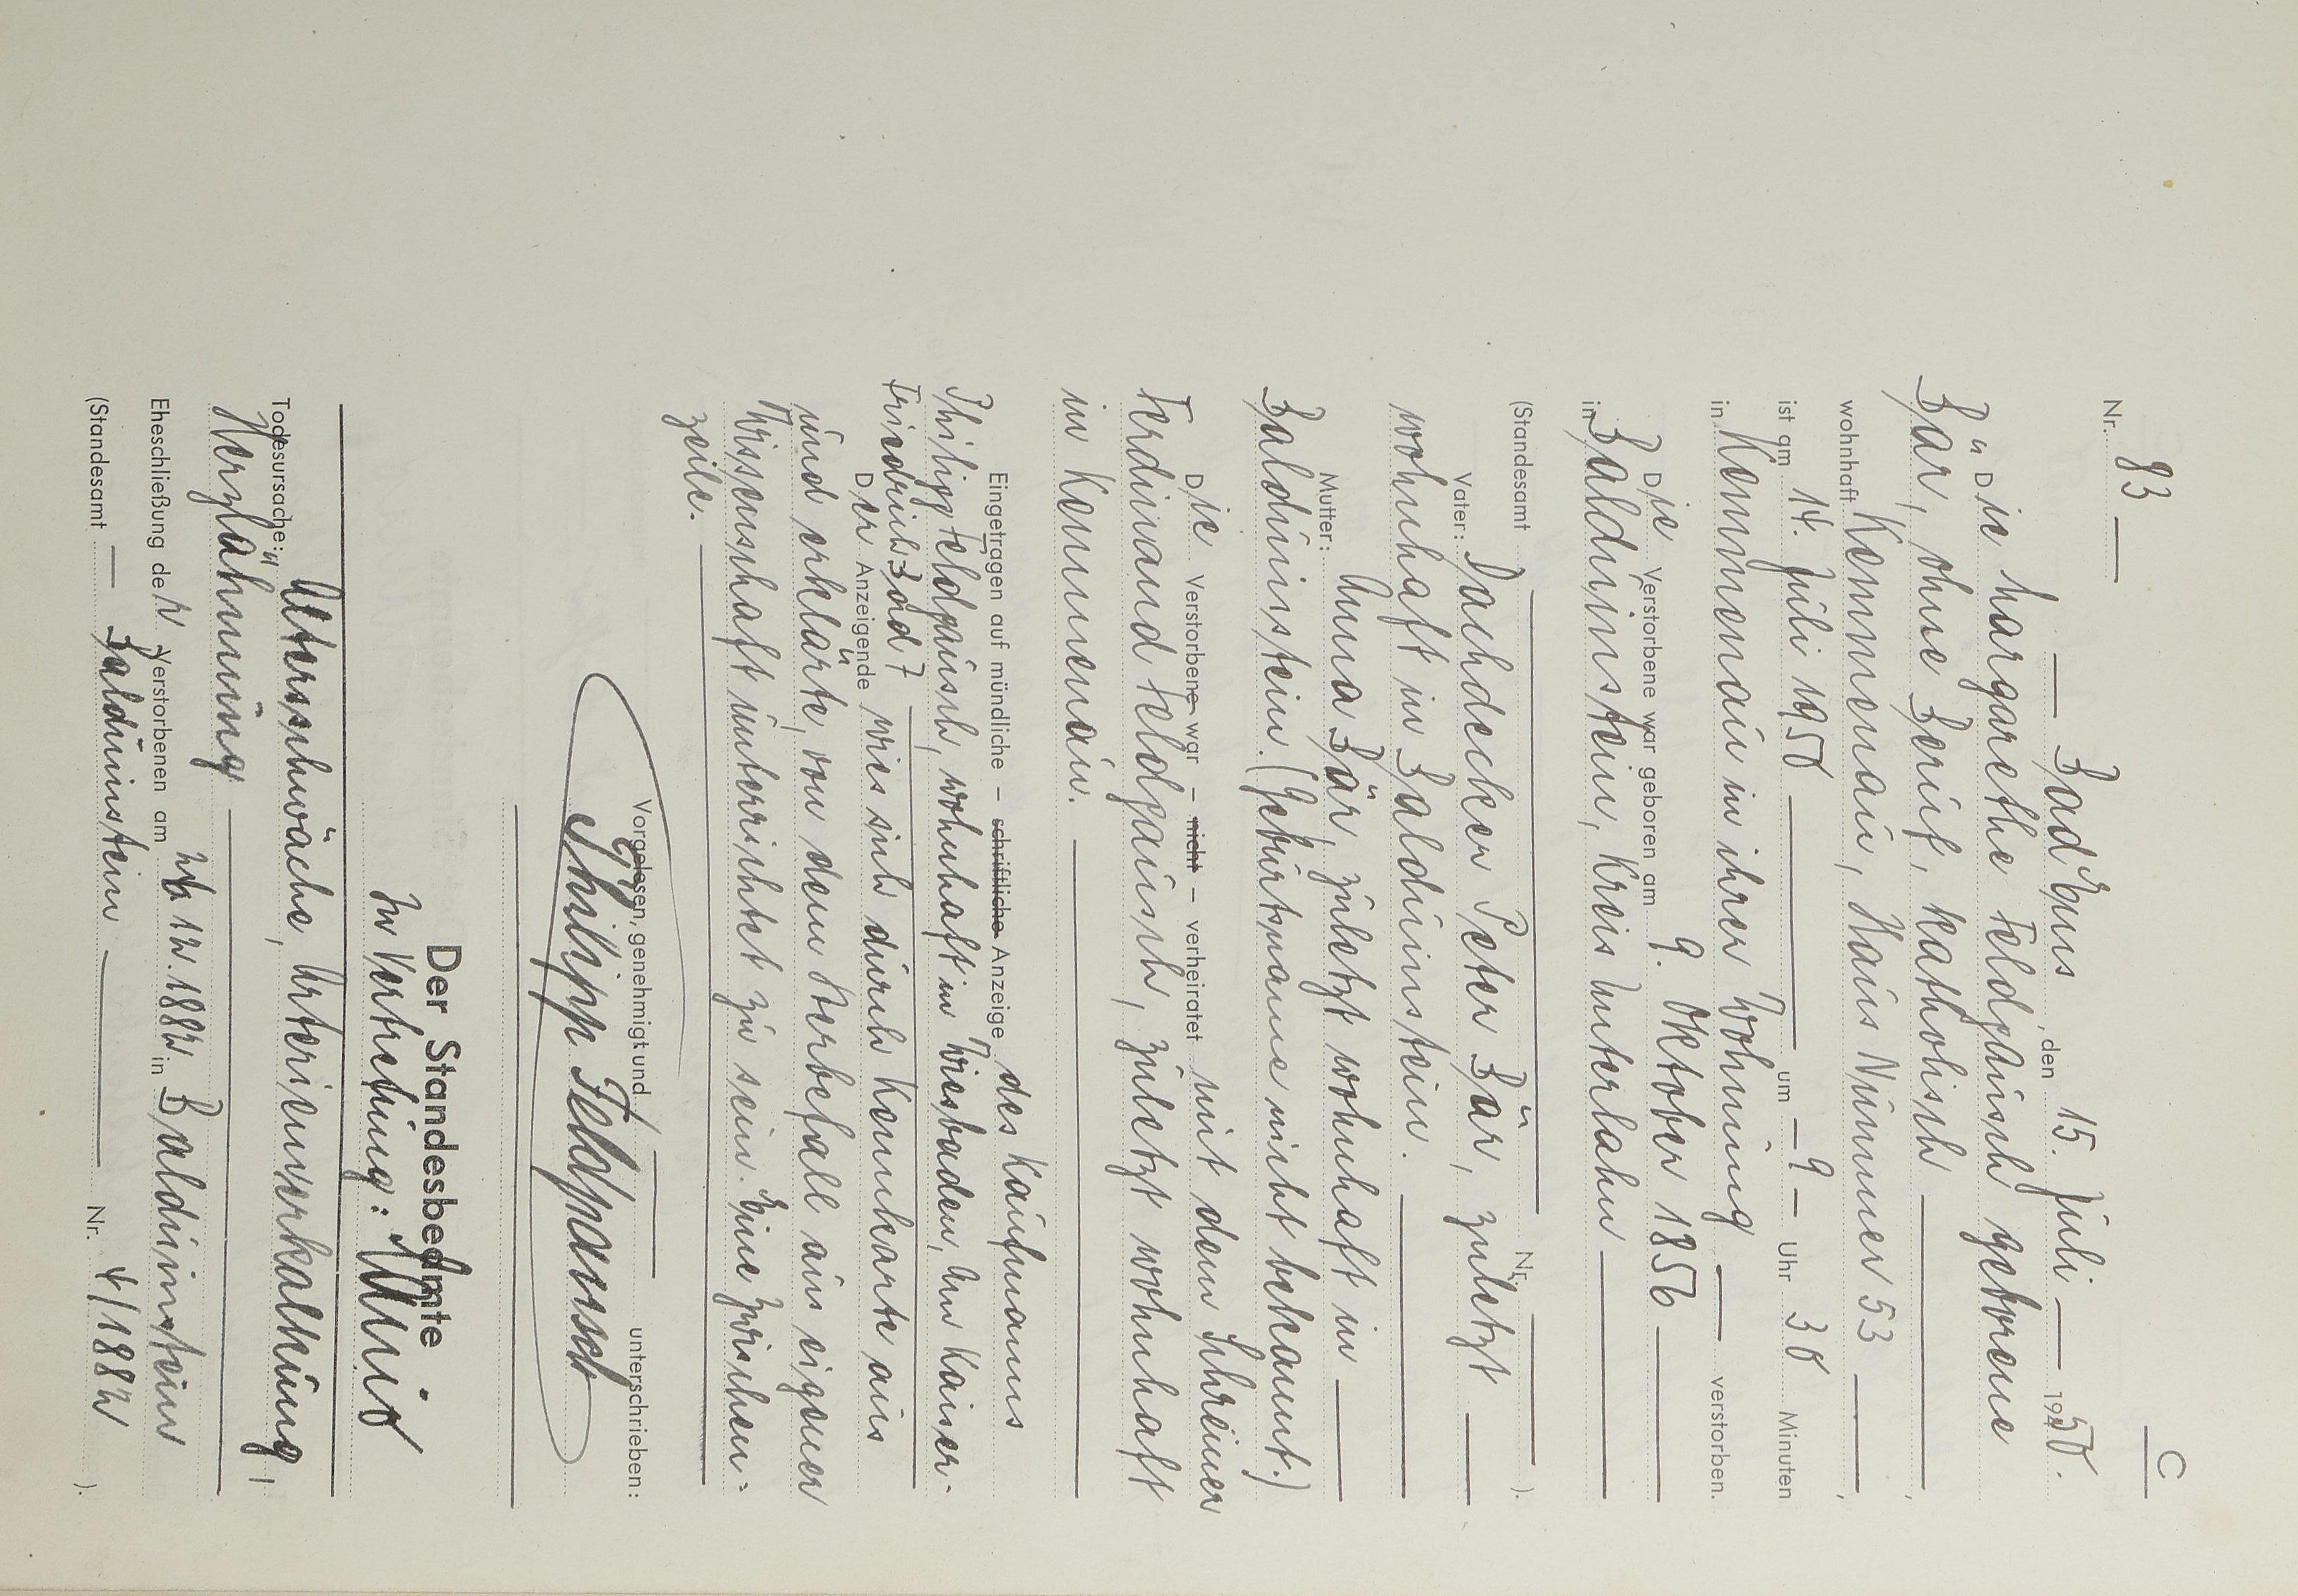 C
Nr. 83 —
— Bad Ems, den 15. Juli — 1950.
Die Margarethe Feldpausch geborene
Bär, ohne Beruf, katholisch —,
wohnhaft Kemmenau, Haus Nummer 53 —,
ist am 14. Juli 1950 — um — 9 — Uhr 30 Minuten
in Kemmenau in ihrer Wohnung — verstorben.
Die Verstorbene war geboren am 9. Oktober 1856 —
in Balduinstein, Kreis Unterlahn —
(Standesamt — Nr. — ).
Vater: Dachdecker Peter Bär, zuletzt —
wohnhaft in Balduinstein. —
Mutter: Anna Bär, zuletzt wohnhaft in —
Balduinstein. (Geburtsname nicht bekannt.)
Die Verstorbene war – nicht – verheiratet mit dem Schreiner
Ferdinand Feldpausch, zuletzt wohnhaft
in Kemmenau. —
Eingetragen auf mündliche – schriftliche Anzeige des Kaufmanns
Philipp Feldpausch, wohnhaft in Wiesbaden, Am Kaiser-
Friedrich Bad 7 —
Der Anzeigende wies sich durch Kennkarte aus
und erklärte, von dem Sterbefall aus eigener
Wissenschaft unterrichtet zu sein. Eine Zwischen-
zeile. —
Vorgelesen, genehmigt und — unterschrieben:
Philipp Feldpausch
Der Standesbeamte
In Vertretung:
Todesursache: Altersschwäche, Arterienverkalkung,
Herzlähmung —
Eheschließung der Verstorbenen am 12. 1882 in Balduinstein
(Standesamt — Balduinstein — Nr. 4/1882 ).